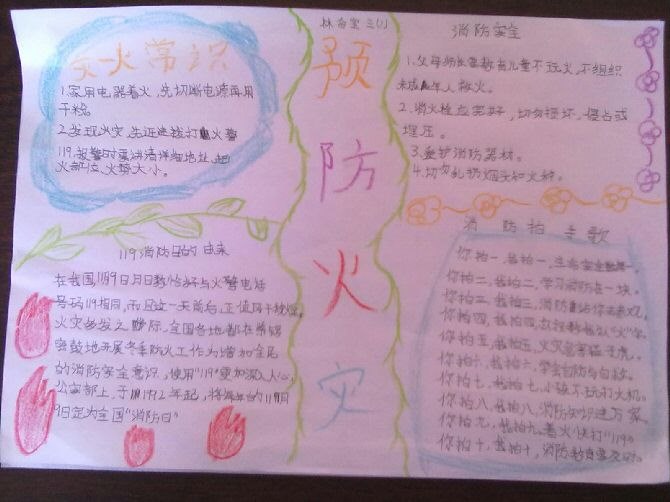 灭火常识
1.家用电器着火,先切断电源再用
干粉
2.发现火灾,先迅速拨打火警
119,报警时要讲清详细地址、起
火部位、火势大小。
119消防日的由来
在我国,11月9日月日数恰好与火警电话
号码119相同,而且这一天前后,正值风干物燥、
火灾多发之际,全国各地都在紧锣
密鼓地开展冬季防火工作。为增加全民
的消防安全意识,使用"119"更加深入人心,
公安部上,于1992年起,将每年的11月
9日定为全国"消防日"
三(1)
预
防
火
灾
消防安全
1.父母师长要教育儿童不玩火,不组织
未成年人救火。
2.消火栓应完好,切勿损坏、侵占或
埋压。
3.爱护消防器材。
4.切勿乱扔烟头和火种。
消防拍手歌
你拍一,我拍一,生命安全
你拍二,我拍二,学习消防在一块。
你拍三,我拍三,消防
你拍四,我拍四,
你拍五,我拍五,火灾危害猛于虎。
你拍六,我拍六,学会自防与自救。
你拍七,我拍七,小孩不玩打火机。
你拍八,我拍八,消防知识进万家。
你拍九,我拍九,着火快打"119"
你拍十,我拍十,消防教育要及时。